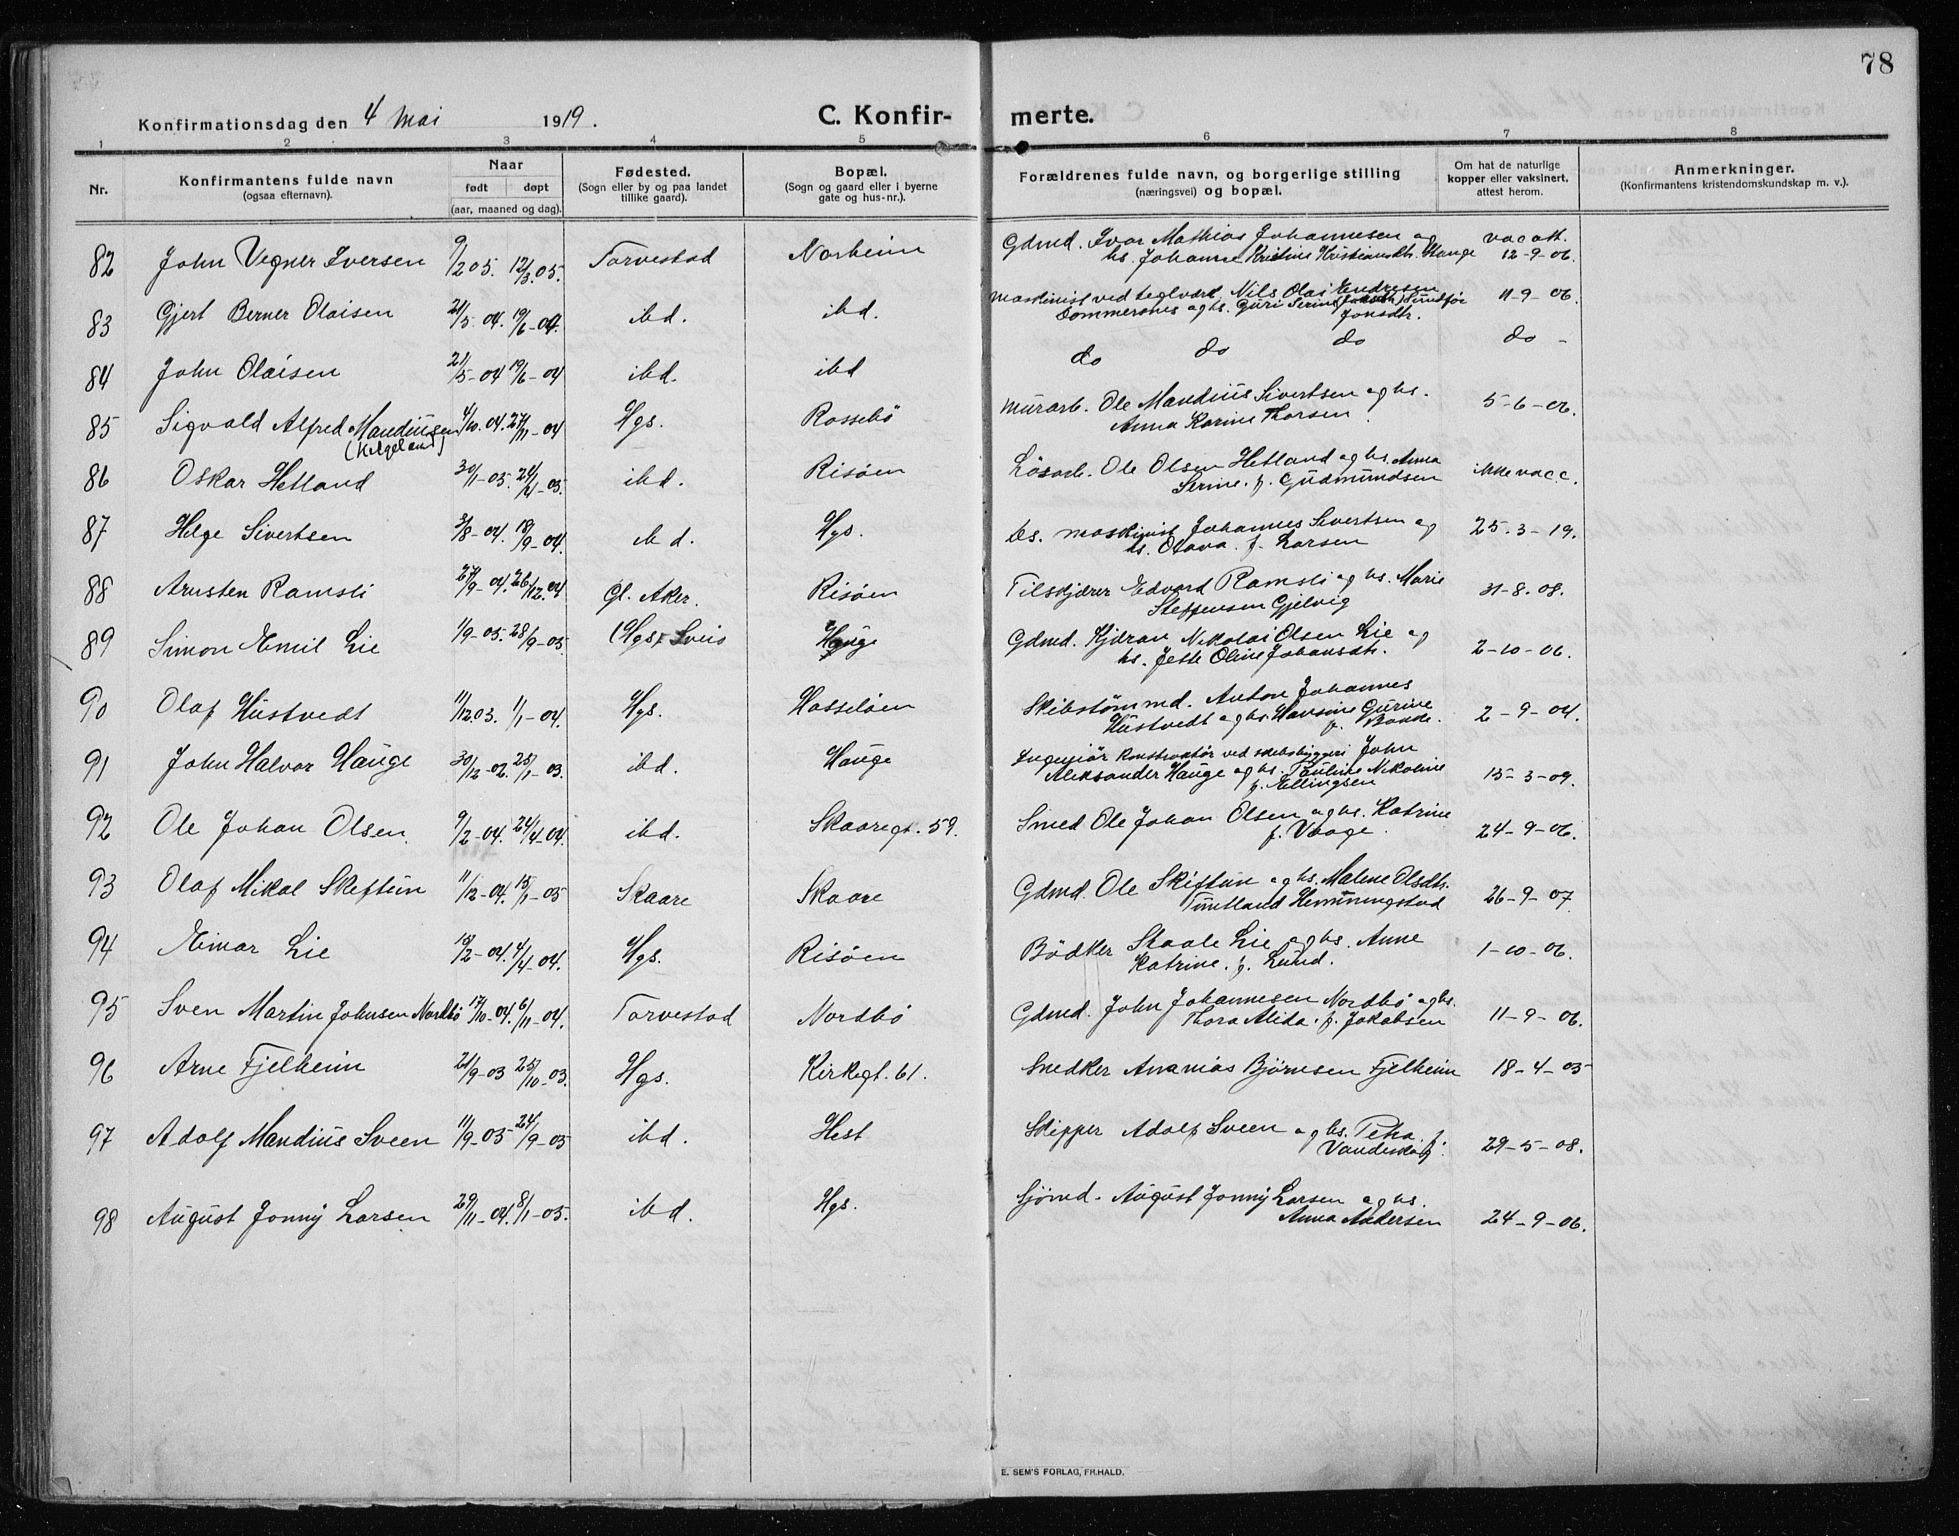 78
Konfirmationsdag den 4 Mai 1919.
C. Konfirmerte.
1 2 3 4 5 6 7 8
Nr.
Konfirmantens fulde navn
(ogsaa efternavn).
Naar
født døpt
(aar, maaned og dag).
Fødested.
(Sogn eller by og paa landet
tillike gaard).
Bopæl.
(Sogn og gaard eller i byerne
gate og hus-nr.).
Forældrenes fulde navn, og borgerlige stilling
(næringsvei) og bopæl.
Om hat de naturlige
kopper eller vaksinert,
attest herom.
Anmerkninger.
(Konfirmantens kristendomskundskap m. v.).
82 John Vegner Iversen 9/2 05. 12/3 05. Torvestad Norheim Gdmd. Ivar Mathias Johannesen og vac att.
hs. Johanne Kristine Kristiansdtr. Hauge 12-9-06.
83 Gjert Berner Olaisen 21/5-04. 19/6-04. ibd. ibd. Maskinist ved teglverk Nils Olai Endresen 11-9-06.
Dommersnes og hs. Guri Serine Sundfør
Jonsdtr.
84 John Olaisen 21/5-04 19/6-04 ibd. ibd do do do do -
85 Sigvald Alfred Mandiussen 4/10.04. 27/11-04 Hgs. Rossebö Murarb. Ole Mandius Sivertsen og hs. 5-6-06.
(Helgeland) Anna Karine Thorsen
86 Oskar Hetland 30/1-05. 24/4-05. ibd. Risöen Lösarb. Ole Olsen Hetland og hs. Anna ikke vacc.
Serine. f. Gudmundsen
87 Helge Sivertsen 3/8-04. 18/9-04. ibd. Hgs. bs. maskinist Johannes Sivertsen og 25-3-19.
hs. Olava. f. Larsen
88 Arnsten Ramsli 27/9-04. 26/12.04 Gl. Aker. Risöen Tilskjærer Edvard Ramsli og hs. Marie 31-8-08.
Steffensen Gjelvig
89 Simon Emil Lie 1/9-05. 28/9-05 (Hgs) Sveio Hauge Gdmd. Kjøran Nikolai Olsen Lie og 2-10-06.
hs. Jette Oline Johansdtr.
90 Olaf Hustvedt 11/12.03. 1/1-04. Hgs. Hasselöen Skibstømmd. Anton Johannes 2-9-04.
Hustvedt og hs. Hansine Gurine
f. Bonde.
91 John Halvor Hauge 30/12-02. 25/1-03. ibd. Hauge Ingeniör Konstruktör ved skibsbyggeri John 15-3-09.
Aleksander Hauge og hs. Pauline Nikoline
f. Ellingsen
92 Ole Johan Olsen 9/2-04. 24/4-04. ibd. Skaaregt. 59. Smed Ole Johan Olsen og hs. Katrine 24-9-06.
f. Vaage.
93 Olaf Mikal Skeftun 11/12-04. 15/1-05 Skaare Skaare Gdmd. Ole Skiftun og hs. Malene Olsdtr. 26-9-07
Tuetland Hemmingstad
94 Einar Lie 10/2-04. 4/4-04. Hgs. Risöen Bödker Staale Lie og hs. Anne 1-10-06.
Katrine. f. Lund.
95 Sven Martin Johnsen Nordbö 17/10-04. 6/11-04. Torvestad Nordbö Gdmd. John Johannesen Nordbö og hs. 11-9-06.
Thora Alida. f. Jakobsen
96 Arne Fjelheim 21/9-03 25/10-03. Hgs. Kirkegt. 61. Snedker Ananias Bjørnsen Fjelheim 18-4-05
97 Adolf Mandius Sveen 11/9-05 24/9-05 ibd. Hest Skipper Adolf Sveen og hs. Petra f. 29-5-08.
Vandeskog.
98 August Jonny Larsen 29/11-04. 8/1-05. ibd. Hgs. Sjömd. August Jonny Larsen og hs. 24-9-06.
Anna Andersen
E. SEM'S FORLAG, FR.HALD.